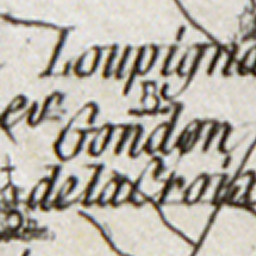 Loupigna
By
es Gondon
de la Croix